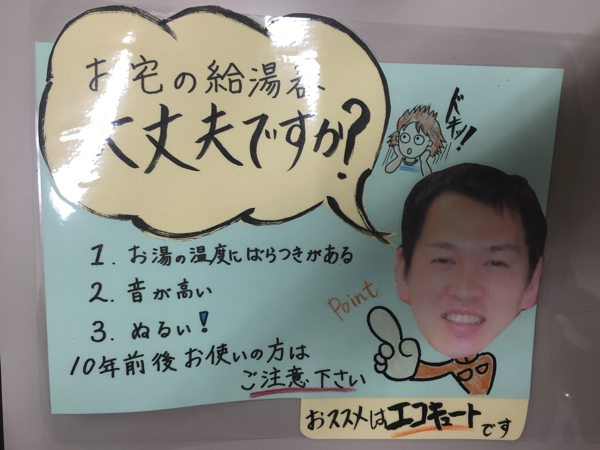 お宅の給湯器
大丈夫ですか?
ドキッ!
1. お湯の温度にばらつきがある
2. 音が高い
3. ぬるい!
Point
10年前後お使いの方は
ご注意下さい
おススメはエコキュートです